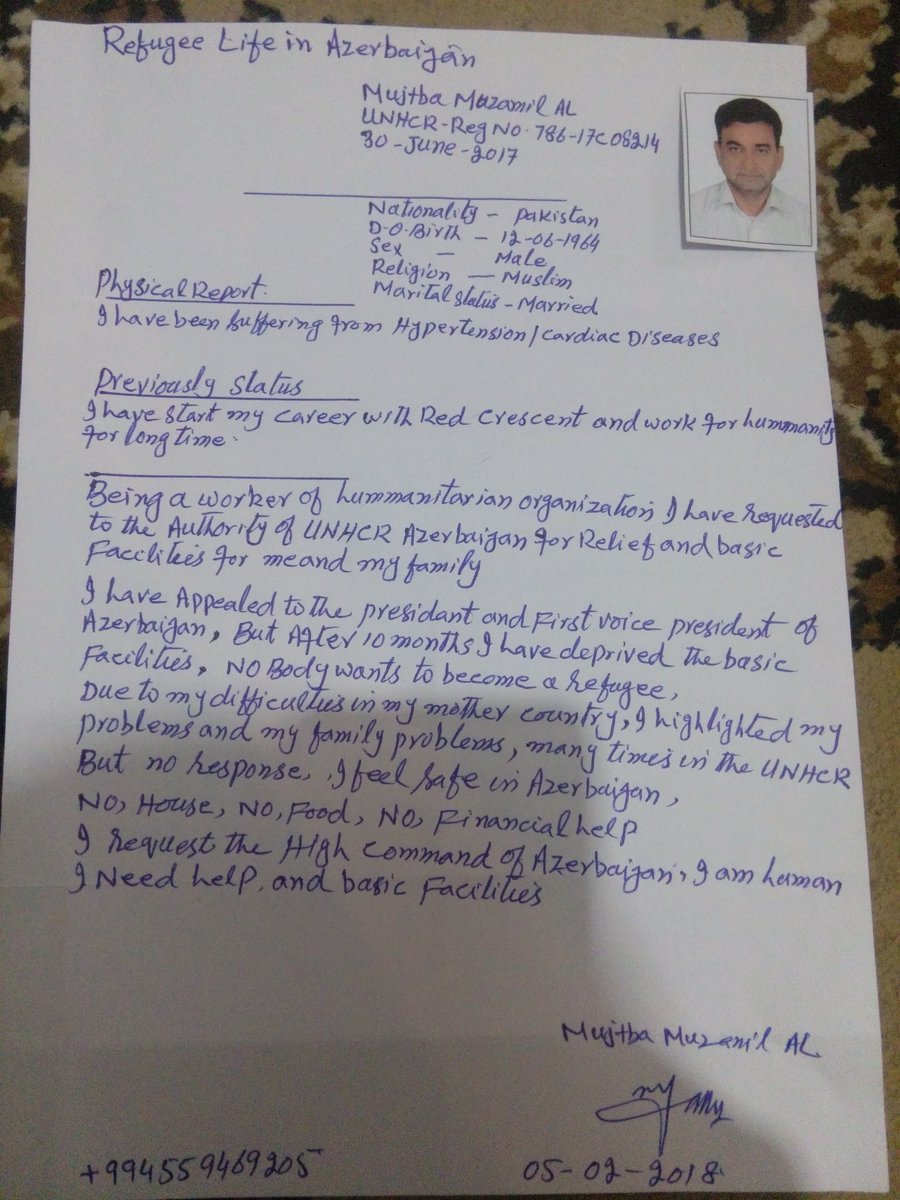 Refugee Life in Azerbaijan
Mujtba Muzamil AL
UNHCR-Reg No. 786-17C08214
30-June-2017
Nationality - Pakistan
D-O-Birth - 12-06-1964
Sex - Male
Religion - Muslim
Marital status - Married
Physical Report.
I have been suffering from Hypertension/Cardiac Diseases
Previously Status
I have start my career with Red Crescent and work for hummanity
for long time.
Being a worker of hummanitarian organization, I have requested
to the Authority of UNHCR Azerbaijan for Relief and basic
Facilities for me and my family
I have Appealed to the presidant and First voice president of
Azerbaijan, But After 10 months I have deprived the basic
Facilities, No Body wants to become a refugee,
Due to my difficulties in my mother country, I highlighted my
problems and my family problems, many times in the UNHCR
But no response, I feel safe in Azerbaijan,
No, House, No, Food, No, Financial help
I request the High Command of Azerbaijan, I am human
I Need help, and basic Facilities
Mujtba Muzamil AL
05-02-2018
+994559469205